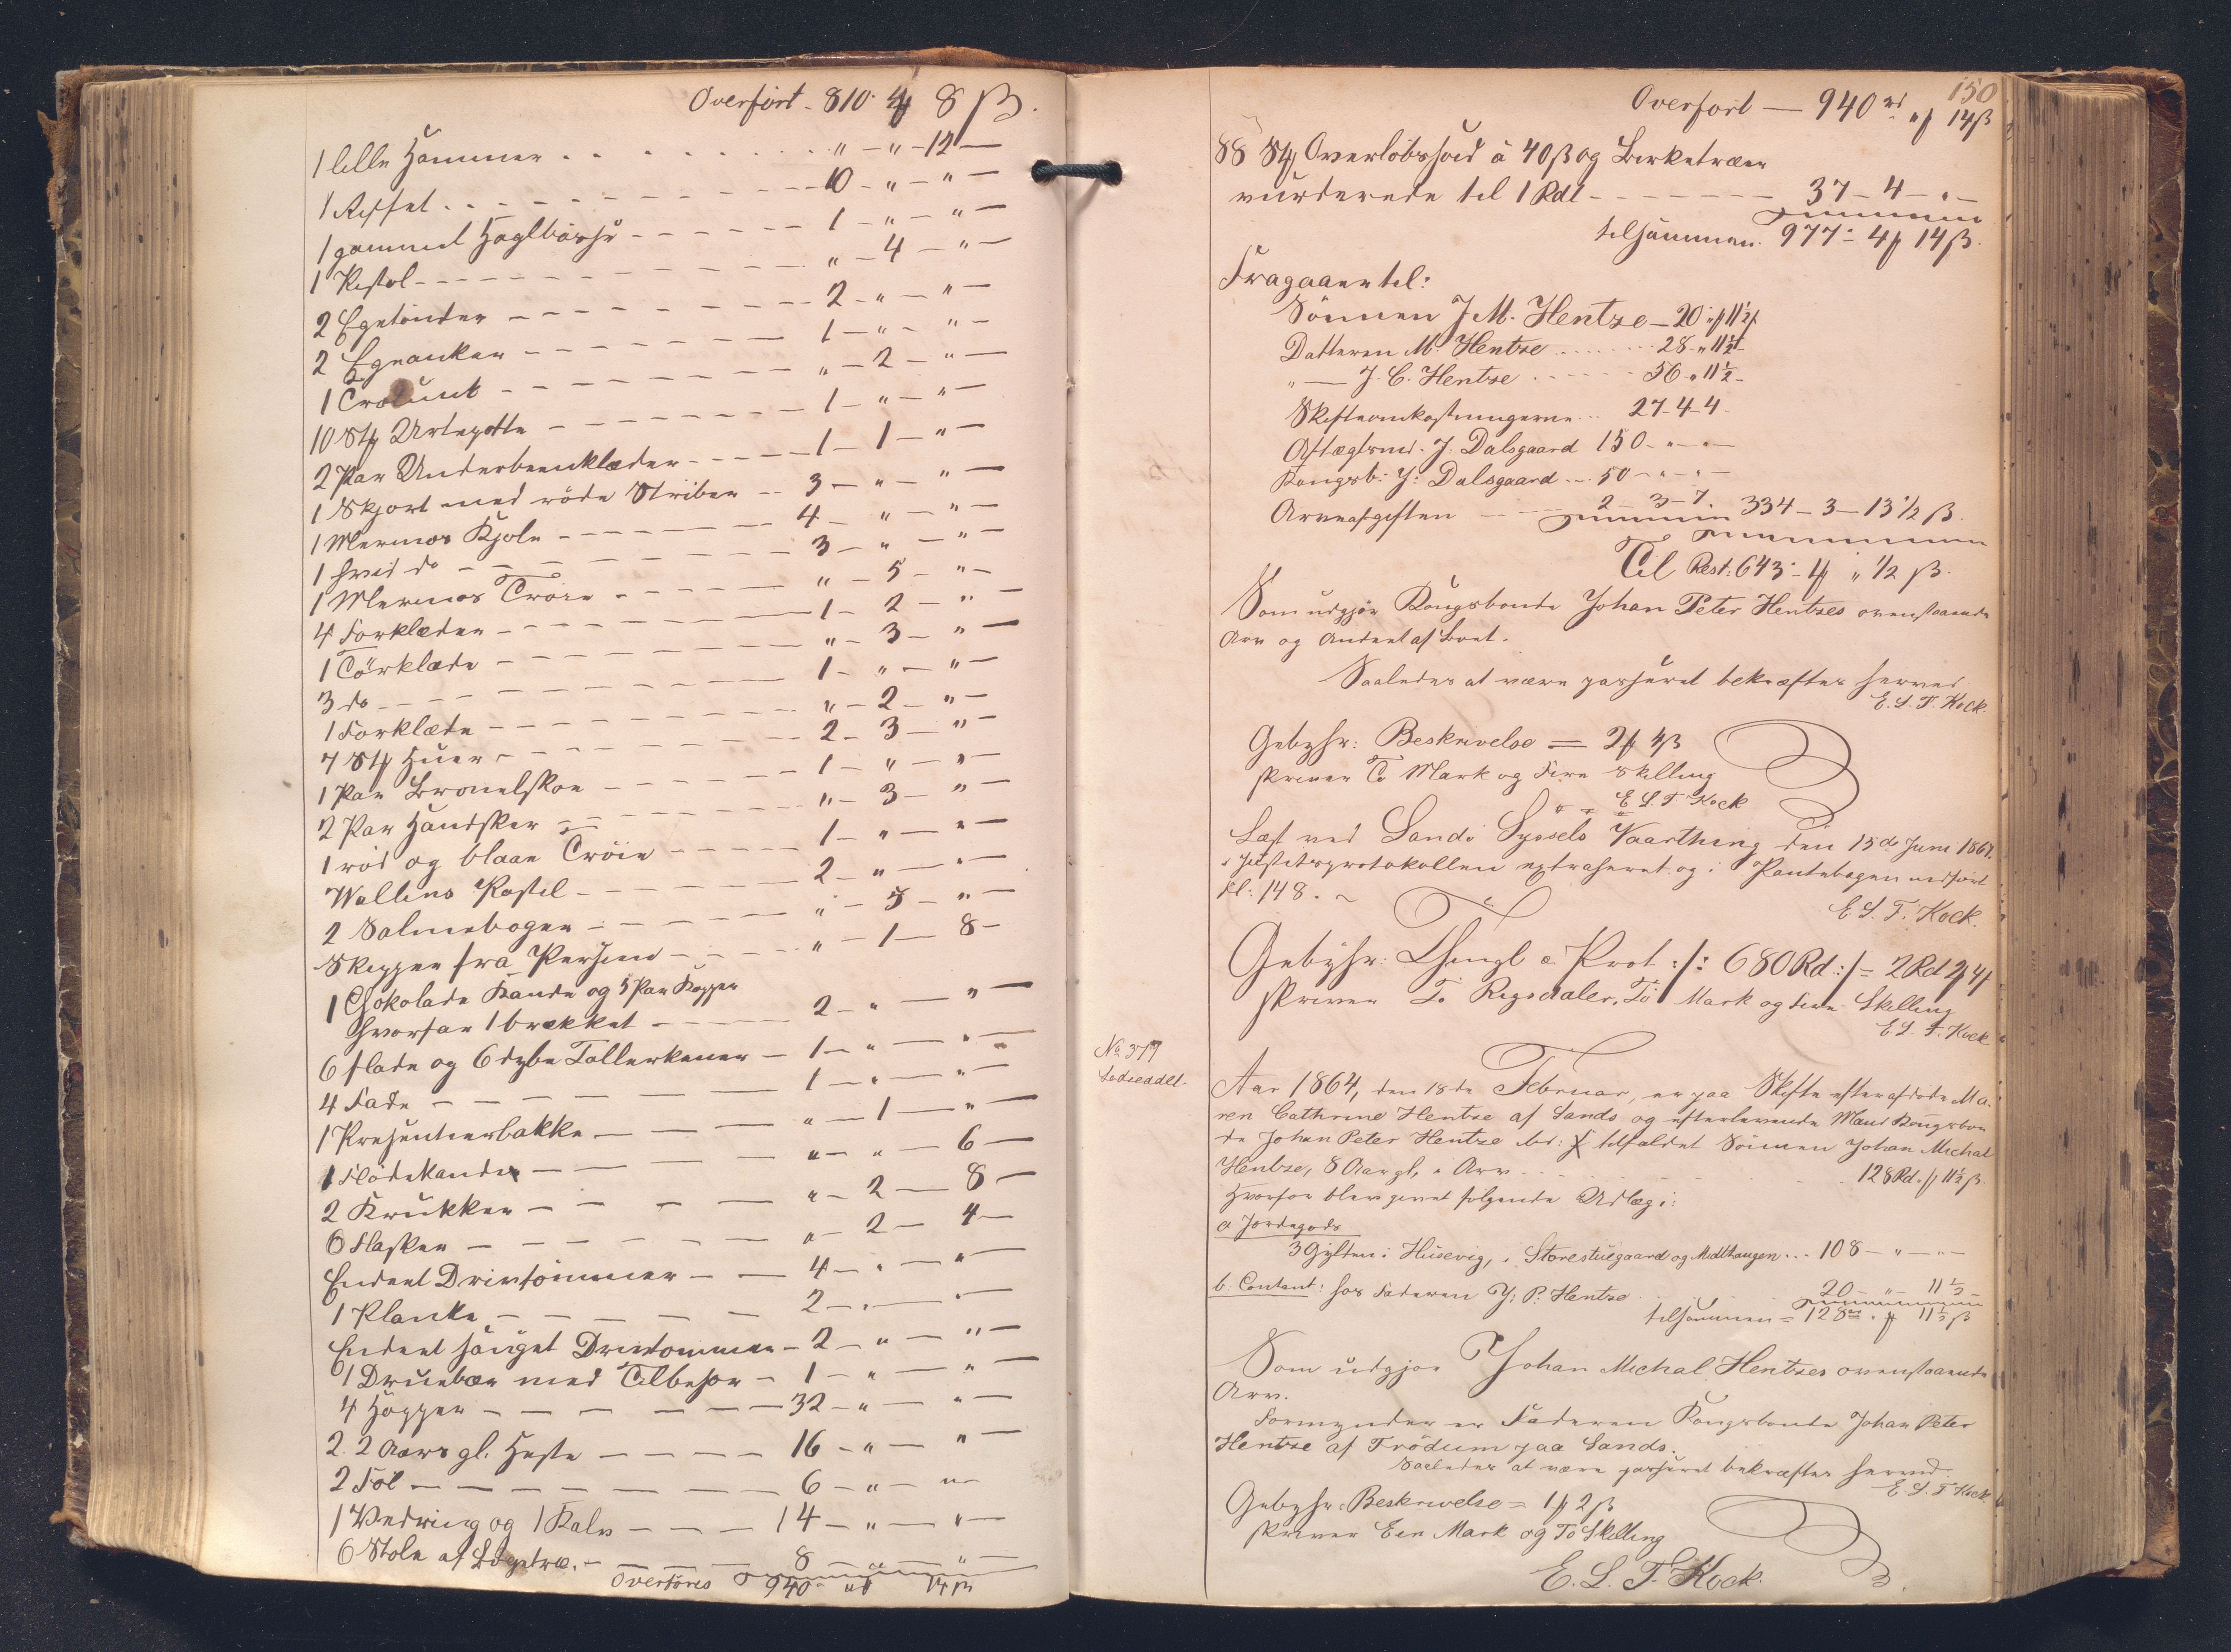 Overført - 810 - 4 ₰ 8 ß.
1 lille Hammer . . . . . . . . . " - " - 12 -
1 Riffel . . - - - - - - 10 - " - " -
1 gammel Haglbøsse - - - - - - 1 - " - " -
1 Pistol - - - - - - - " - 4 - " -
2 Egetønder - - - - - - 2 - " - " -
2 Egeanker - - - - - - 1 - " - " -
1 - - - - - - " - 2 - " -
10 Stk Urtepotte - - - - - - 1 - " - " -
2 Par Underbeenklæder - - - - 1 - 1 - " -
1 Skjort med røde Striber - - 3 - " - " -
1 Merinos Kjole - - - - - - 4 - " - " -
1 hvid do - - - - - - 3 - " - " -
1 Merinos Trøie - - - - - - " - 5 - " -
4 Forklæder - - - - - - 1 - 2 - " -
1 Törklæde - - - - - - " - 3 - " -
3 do - - - - - - 1 - " - " -
1 Forklæde - - - - - - " - 2 - " -
7 Stk Huer - - - - - - 2 - 3 - " -
1 Par Brunelskoe - - - - 1 - " - " -
2 Par Handsker - - - - - " - 3 - " -
1 rød og blaae Trøie - - - - 1 - " - " -
Wallins Postil - - - - - - 2 - " - " -
2 Salmebøger - - - - - - " - 5 - " -
Skipper fra - - - - " - 1 - 8 -
1 Chokolade Kande og 5 Par Kopper
hvoraf 1 brækket - - - - 2 - " - " -
6 flade og 6 dybe Tallerkener - 1 - " - " -
4 Fade - - - - - - 1 - " - " -
1 Presenteerbakke - - - - " - 1 - " -
1 Flødekande - - - - " - " - 6 -
2 Krukker - - - - - " - 2 - 8 -
6 Flasker - - - - - - " - 2 - 4 -
Endeel Drivtømmer - - 4 - " - " -
1 Planke - - - - - 2 - " - " -
Endeel sauget Drivtømmer - 2 - " - " -
1 med Tilbehør - 1 - " - " -
4 Hopper - - - - - - 32 - " - " -
2. 2 Aars gl. Heste - - - - 16 - " - " -
2 Føl - - - - - - - 6 - " - " -
1 Vedring og 1 Kalv - - - 14 - " - " -
6 Stole af Bøgetræ. - - - - - 8 - " - " -
Overføres 940 - " ₰ 14 ß
150
Overført - 940 rd " ₰ 14 ß
88 Stk Overløbsjord à 40 ß og Birketræer
vurderede til 1 Rdl - - - - - - 37 - 4 - " -
tilsammen. 977 - 4 ₰ 14 ß.
Fragaaer til:
Sønnen J. M. Hentze - 20 " ₰ 11½
Datteren M. Hentze . . . . . . 28 - " 11½ -
" - J. C. Hentze . . . . . . 56 - " 11½ -
Skifteomkostningerne . . . 27 - 4 - 4 -
Aftægtsmd. J. Dalsgaard 150 - " - " -
Kongsb: J: Dalsgaard . . . 50 - " - " -
Arveafgiften - - - - 2 - 3 - 7. 334 - 3 - 13½ ß.
Til Rest: 643 - ₰ " ½ ß.
Som udgjør Kongsbonde Johan Peter Hentzes ovenstaaende
Arv og Andeel af Boet.
Saaledes at være passeret bekræftes herved.
E. L. T. Kock.
Gebyhr: Beskrivelse = 2 ₰ 4 ß
skriver To Mark og Fire Skilling
E L. T Kock
Læst ved Sandø Syssels Vaarthing den 15de Juni 1867.
i Justitsprotokollen extraheret og i Pantebogen indført
fl: 148. ~
E L. T. Kock.
Gebÿhr: Thingl & Prot :/: 680 Rd :/: = 2 Rd 2 ₰ 4 ß
skriver To Rigsdaler, To Mark og Fire Skilling
E L. T. Kock
No. 377
Lodseddel.
Aar 1864, den 18de Februar, er paa Skifte efter afdøde Ma-
ren Cathrine Hentze af Sands og efterlevende Mand Kongsbon
de Johan Peter Hentze ibd: tilfaldet Sønnen Johan Michal
Hentze, 8 Aar gl, i Arv . . . . . . 128 Rd " ₰ 11½ ß.
Hvorfor blev givet følgende Udlæg i:
a Jordegods
3 Gylden i Husevig, i Storestuegaard og Midlhaugen . . . 108 - " - " -
b. Contant: hos Faderen J: P: Hentze . . . 20 - " - 11½ -
tilsammen = 128 rd " ₰ 11½ ß
Som udgjør Johan Michal Hentzes ovenstaaende
Arv.
Formynder er Faderen Kongsbonde Johan Peter
Hentze af Trødum paa Sands.
Saaledes at være passeret bekræftes herved.
E. L. T Kock.
Gebyhr: Beskrivelse = 1 ₰ 2 ß
skriver Een Mark og To Skilling
E. L. T. Kock.